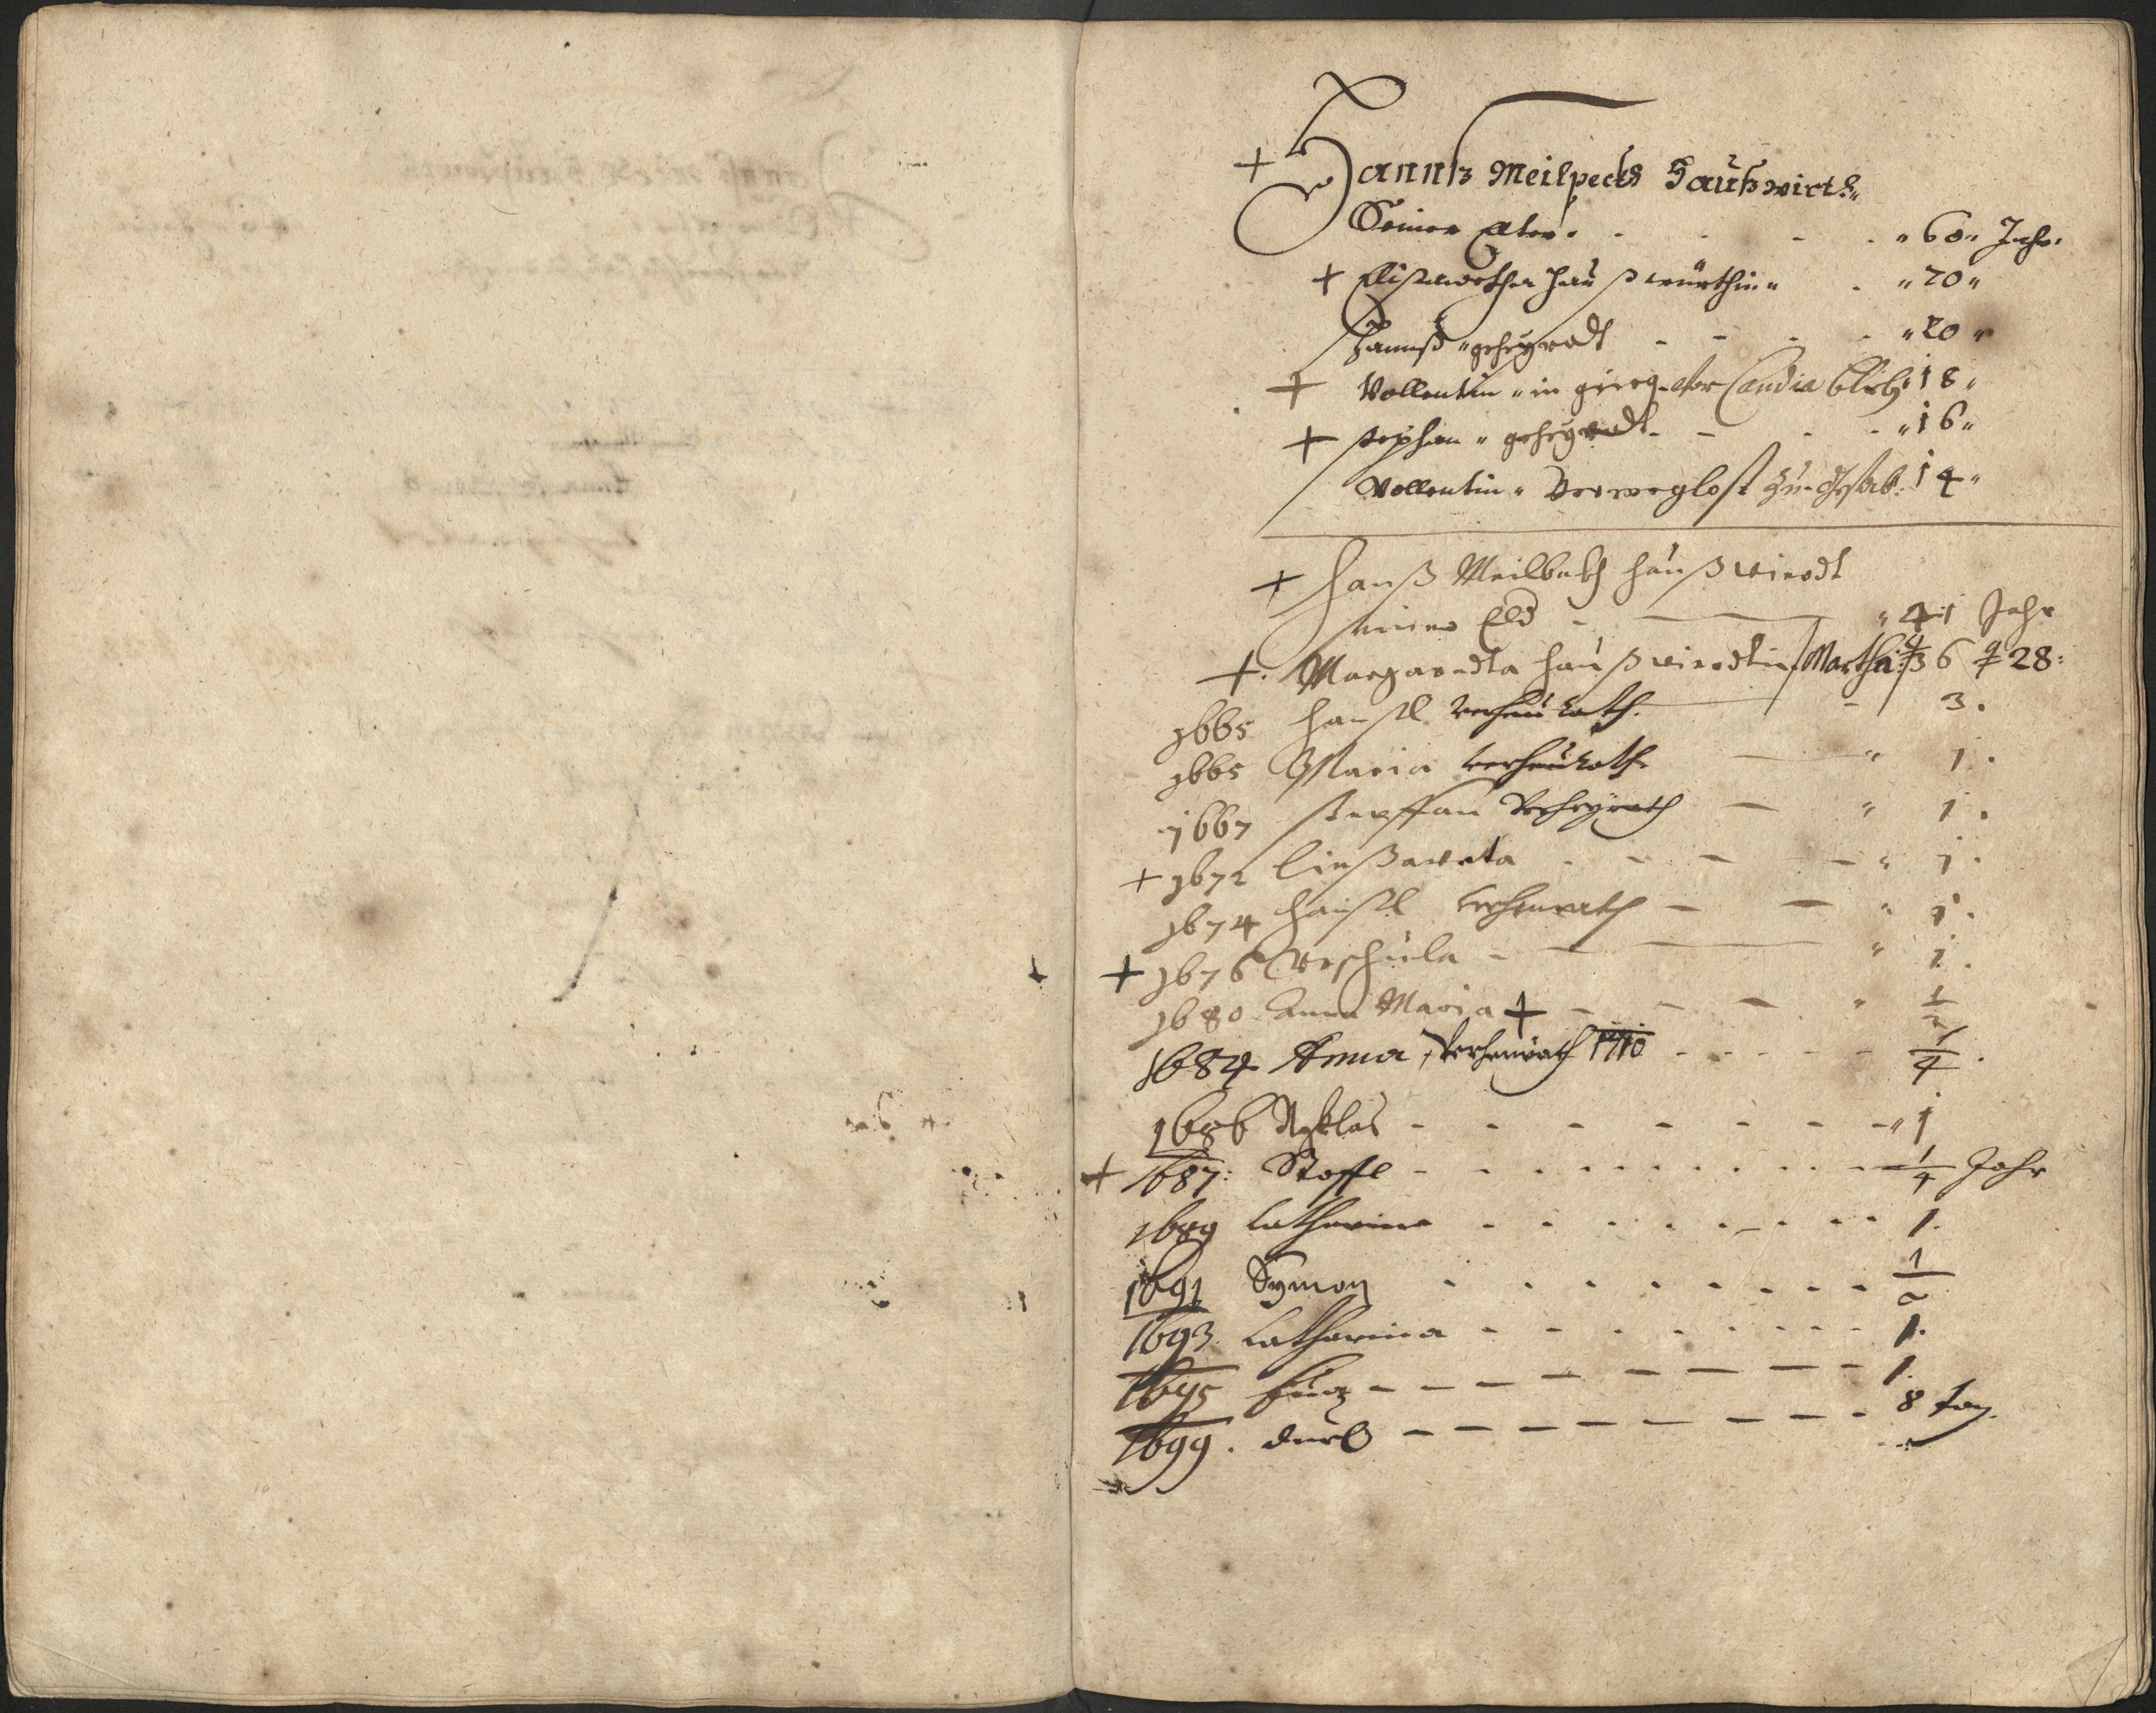 + Hannß Meilpeckh Haußwirth
Seines Alter . . . . " 60 " Jahr.
+ Elisawetha haußwürthin " . " 70 "
Hannß " geheyradt - - . . " 20 "
+ Vollentin " in grieg vor Candia blib: 18 "
+ Stephan " geheyradt - - . . " 16 "
Vollentin " 14 "
+ Hanß Meilbekh haußwierdt
seines Eld - — " 41 Jahr
+. Margaredta haußwierdtin / Martha: / 36 28:
1665 Hansl verheürath. — - 3.
1665 Maria verheürath — " 1.
1667 Steffan Verheyrath — " 1.
+ 1672 Ließaweta . - - - " 1.
1674 Hansl verheurath - — " 1.
+ 1676 Urschula - — " 1.
1680 Anna Maria + - - - " 1/2
1684 Anna, Verheürath 1710 - - - - - 1/4.
1686 Nicklas - - - - - - " 1
+ 1687: Stoffl - - - - - - - - - 1/4 Jahr
1689 Catharina - - - - - - - - 1.
1691 Symon - - - - - - - - 1/2
1693. Catharina - - - - - - - - 1.
1695 - - - - - - - 1.
1699. - - - - - - - - 8 tag.